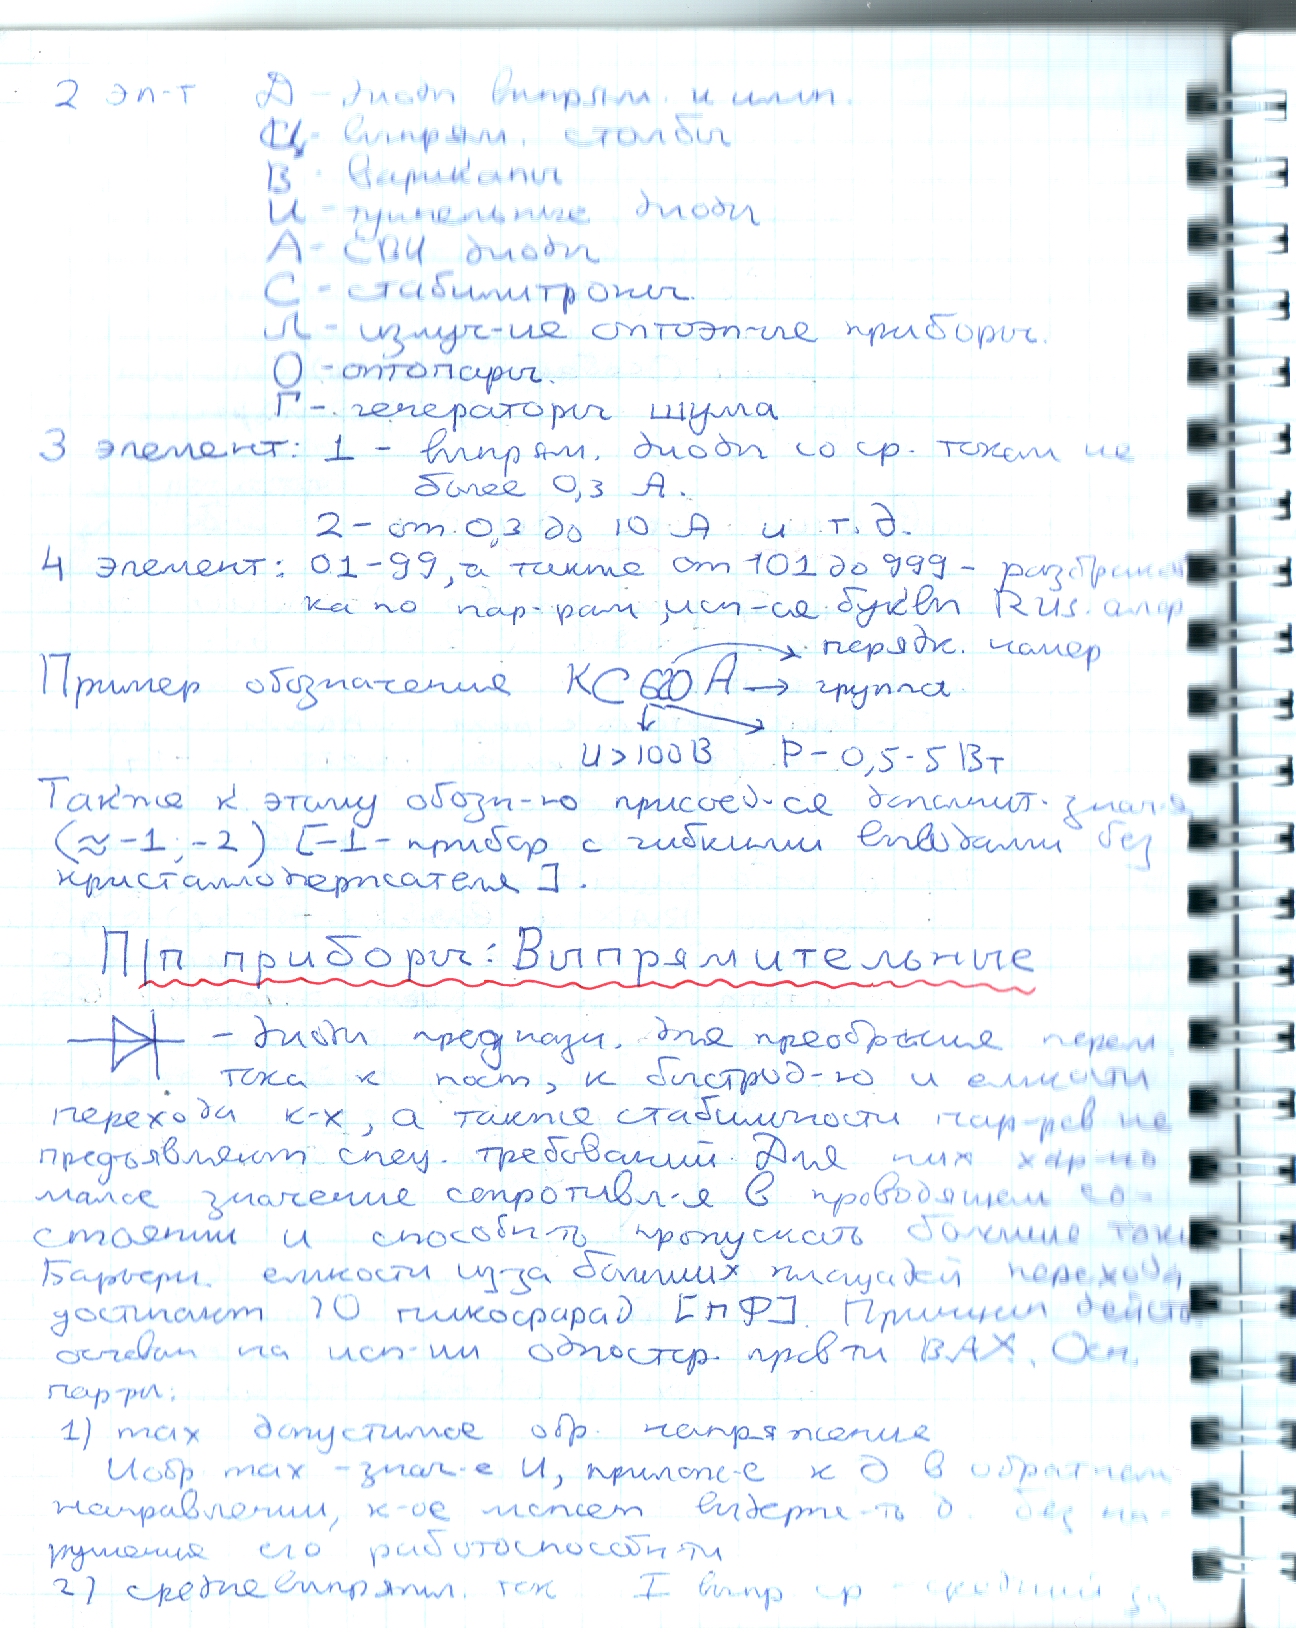 2 эл-т Д - диоды выпрям. и имп.
Ц - выпрям. столбы
В - варикапы
И - туннельные диоды
А - СВЧ диоды
С - стабилитроны.
Л - излуч-ие оптоэл-ие приборы.
О - оптопары.
Г - генераторы шума
3 элемент: 1 - выпрям. диоды со ср. током не
более 0,3 А.
2 - от 0,3 до 10 А и т.д.
4 элемент: 01-99, а также от 101 до 999 -
ка по пар-рам, исп-ся буквы RUS.
порядк. номер
Пример обозначения КС620А → группа
U>100В P - 0,5-5 Вт
Также к этому обозн-ю присоед-ся дополнит.
(≈ -1; -2) [-1 - прибор с гибкими выводами без
кристаллодержателя].
П/п приборы: Выпрямительные
- диоды предназн. для перем.
тока к пост, к быстрод-ю и емкости
перехода к-х, а также стабильности пар-ров не
предъявляют спец. требований. Для них хар-но
малое значение сопротивл-я в проводящем со-
стоянии и способн-ть пропускать большие токи
Барьерн. емкости из-за больших площадей перехода
достигают 10 пикофарад [пФ]. Принцип
основан на исп-ии одностор. пров-ти ВАХ. Осн.
пар-ры:
1) max допустимое обр. напряжение
Uобр max - знач-е U, прилож-е к д в обратном
направлении, к-ое может выдерж-ть д. без на-
рушения его работоспособн-ти
2) средне выпрямл. ток I выпр ср - средний за